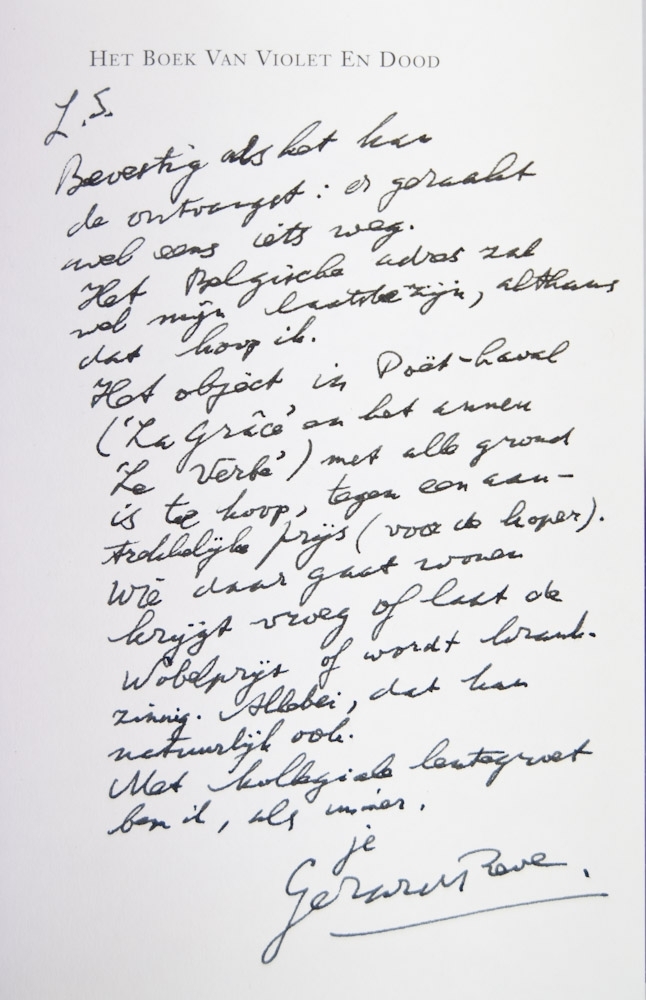 HET BOEK VAN VIOLET EN DOOD
L.S.
Bevestig als het kan
de ontvangst: er geraakt
wel eens iets weg.
Het Belgische adres zal
wel mijn laatste zijn, althans
dat hoop ik.
Het object in Poët-Laval
('La Grâce' en het annex
'Le Verbe') met alle grond
is te koop, tegen een aan-
trekkelijke prijs (voor de koper).
Wie daar gaat wonen
krijgt vroeg of laat de
Nobelprijs of wordt krank-
zinnig. Allebei, dat kan
natuurlijk ook.
Met kollegiale lentegroet
ben ik, als immer,
je
Gerard Reve.